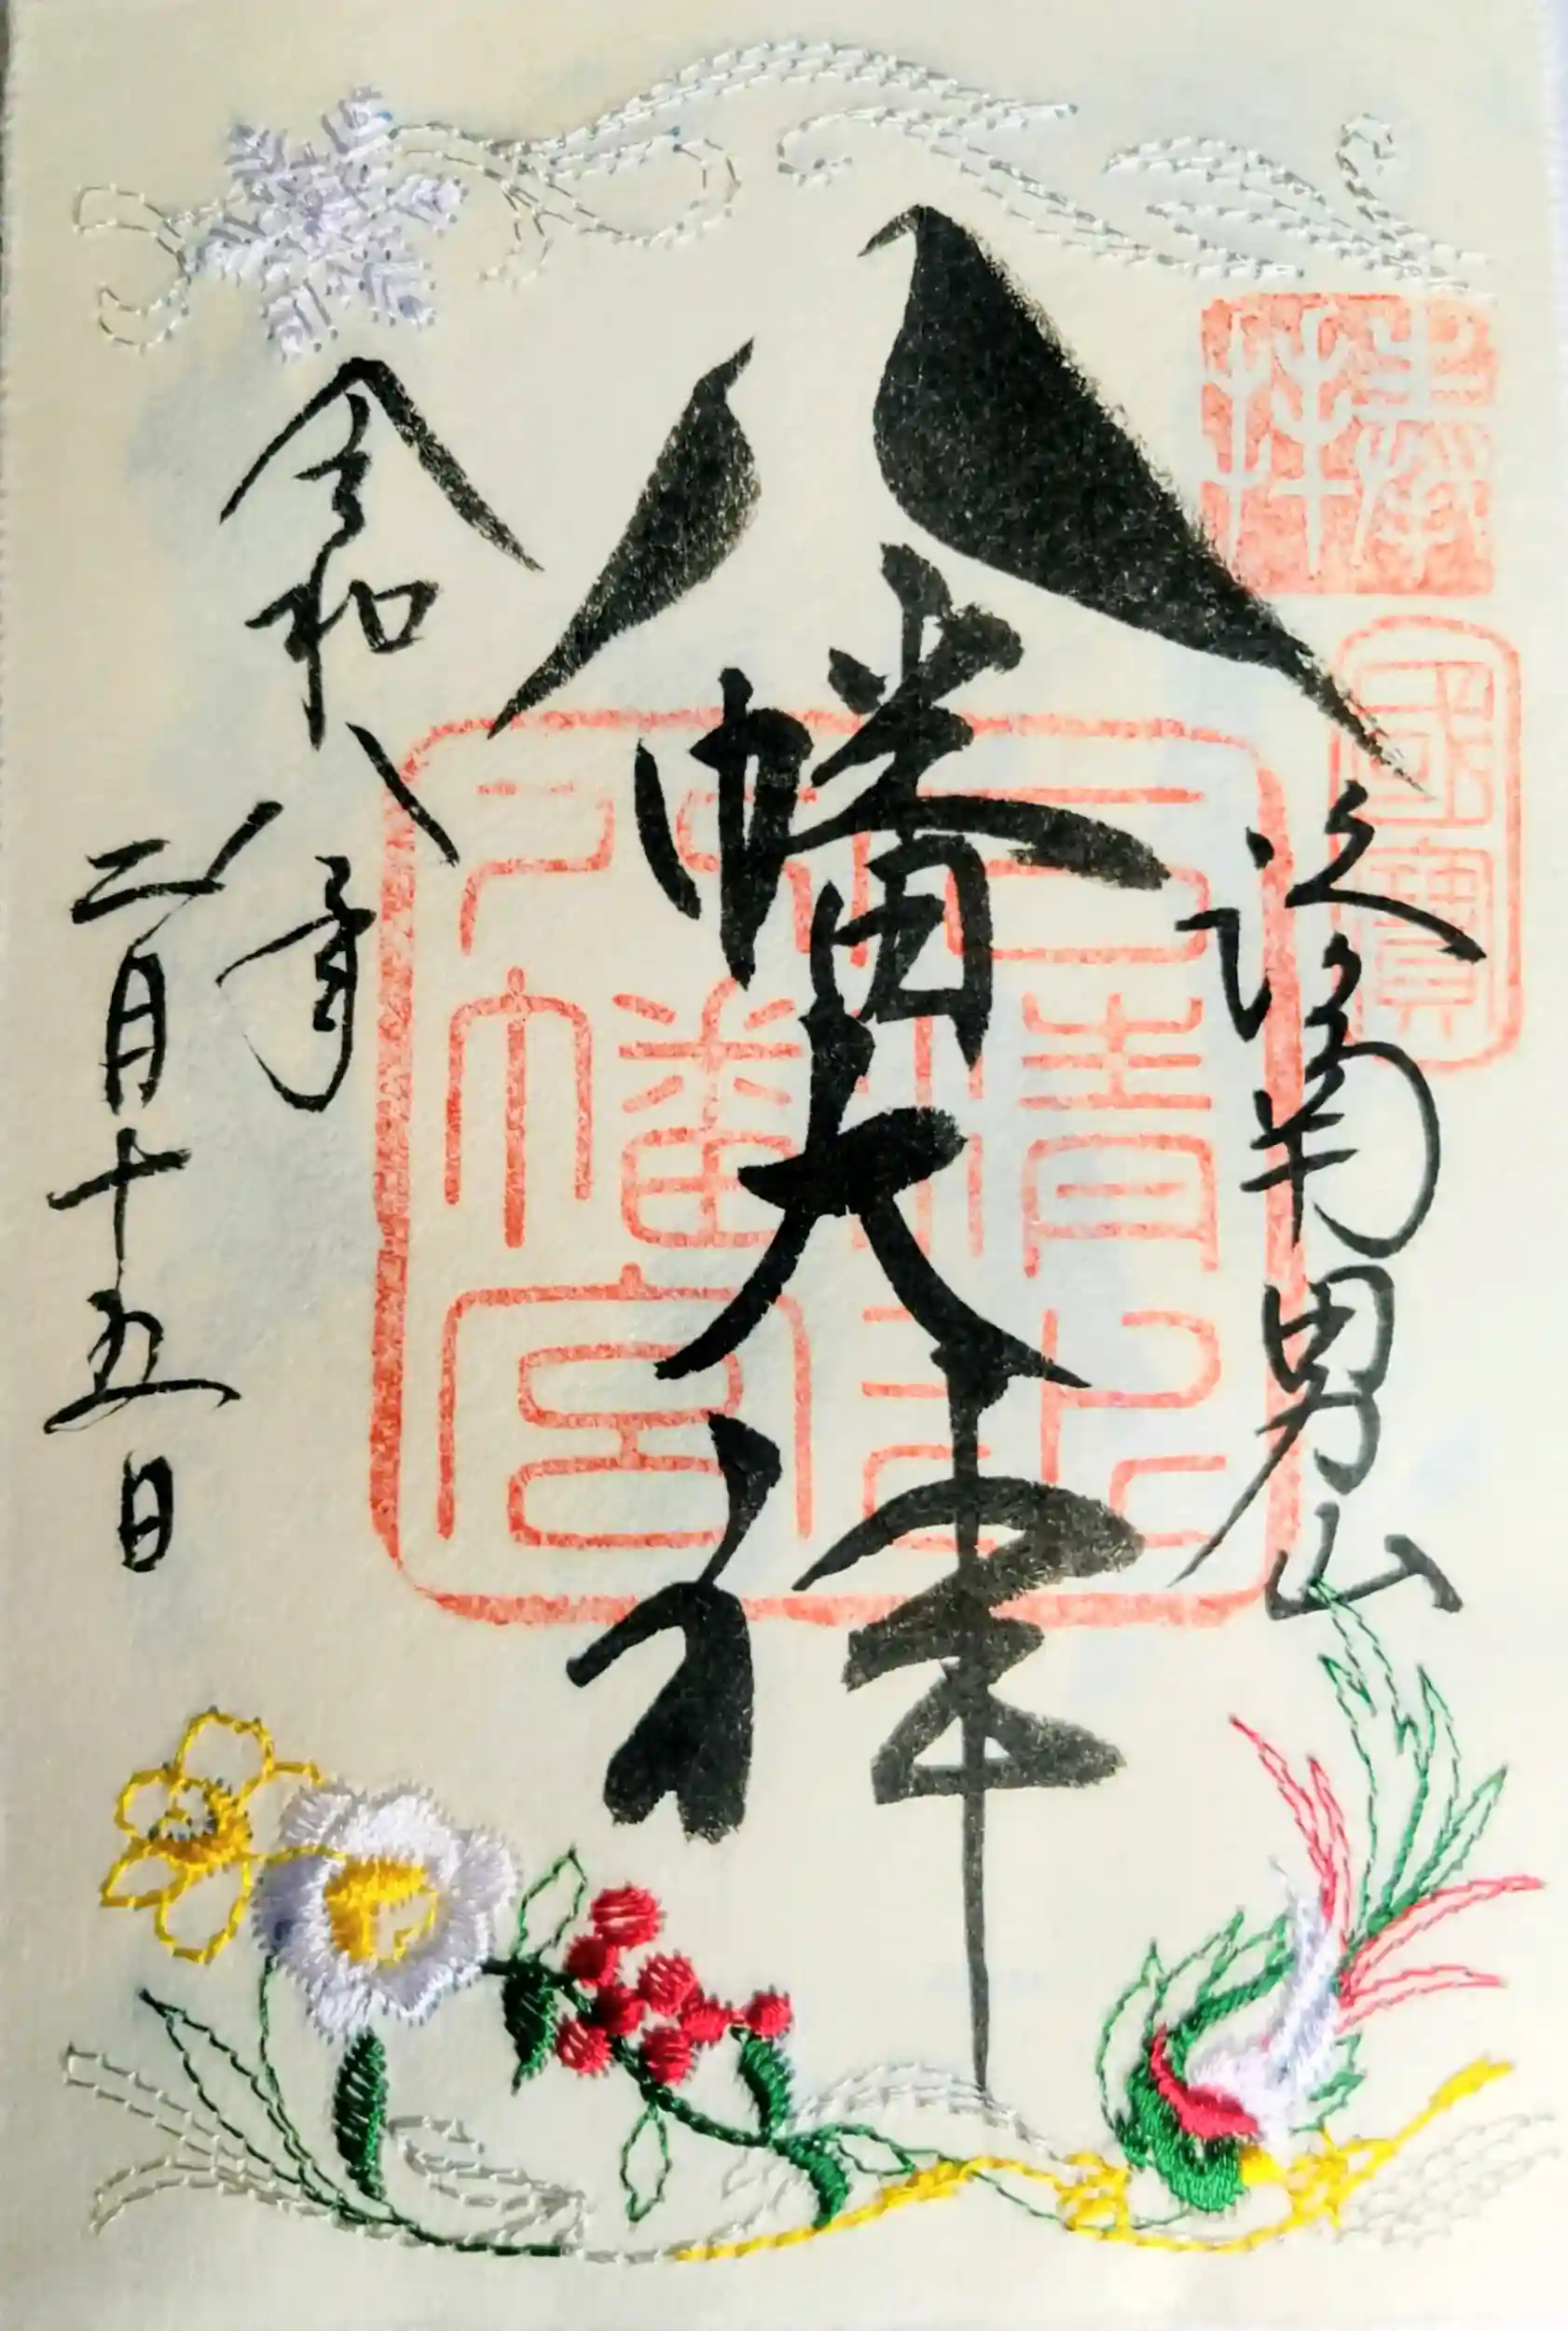 奉拝
國寶
洛南男山
八幡大神
石清水
八幡宮
令和八年
二月十五日